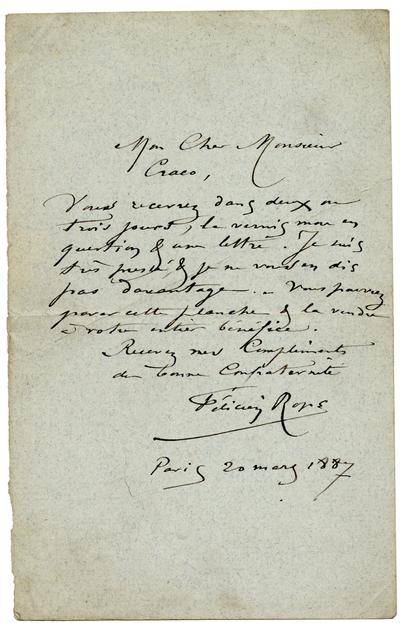 Mon Cher Monsieur
Craco,
Vous recevrez dans deux ou
trois jours, le vernis mou en
question & une lettre. Je suis
très pressé & je ne vous en dis
pas davantage. – Vous pourrez
parer cette planche & la vendre
à votre entier bénéfice.
Recevez mes Compliments
de bonne Confraternité
Félicien Rops
Paris 20 mars 1887